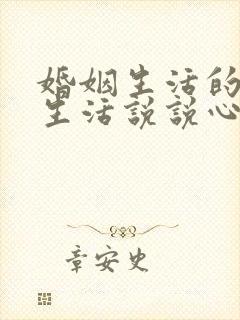 婚姻生活的
生活说说心
章安史